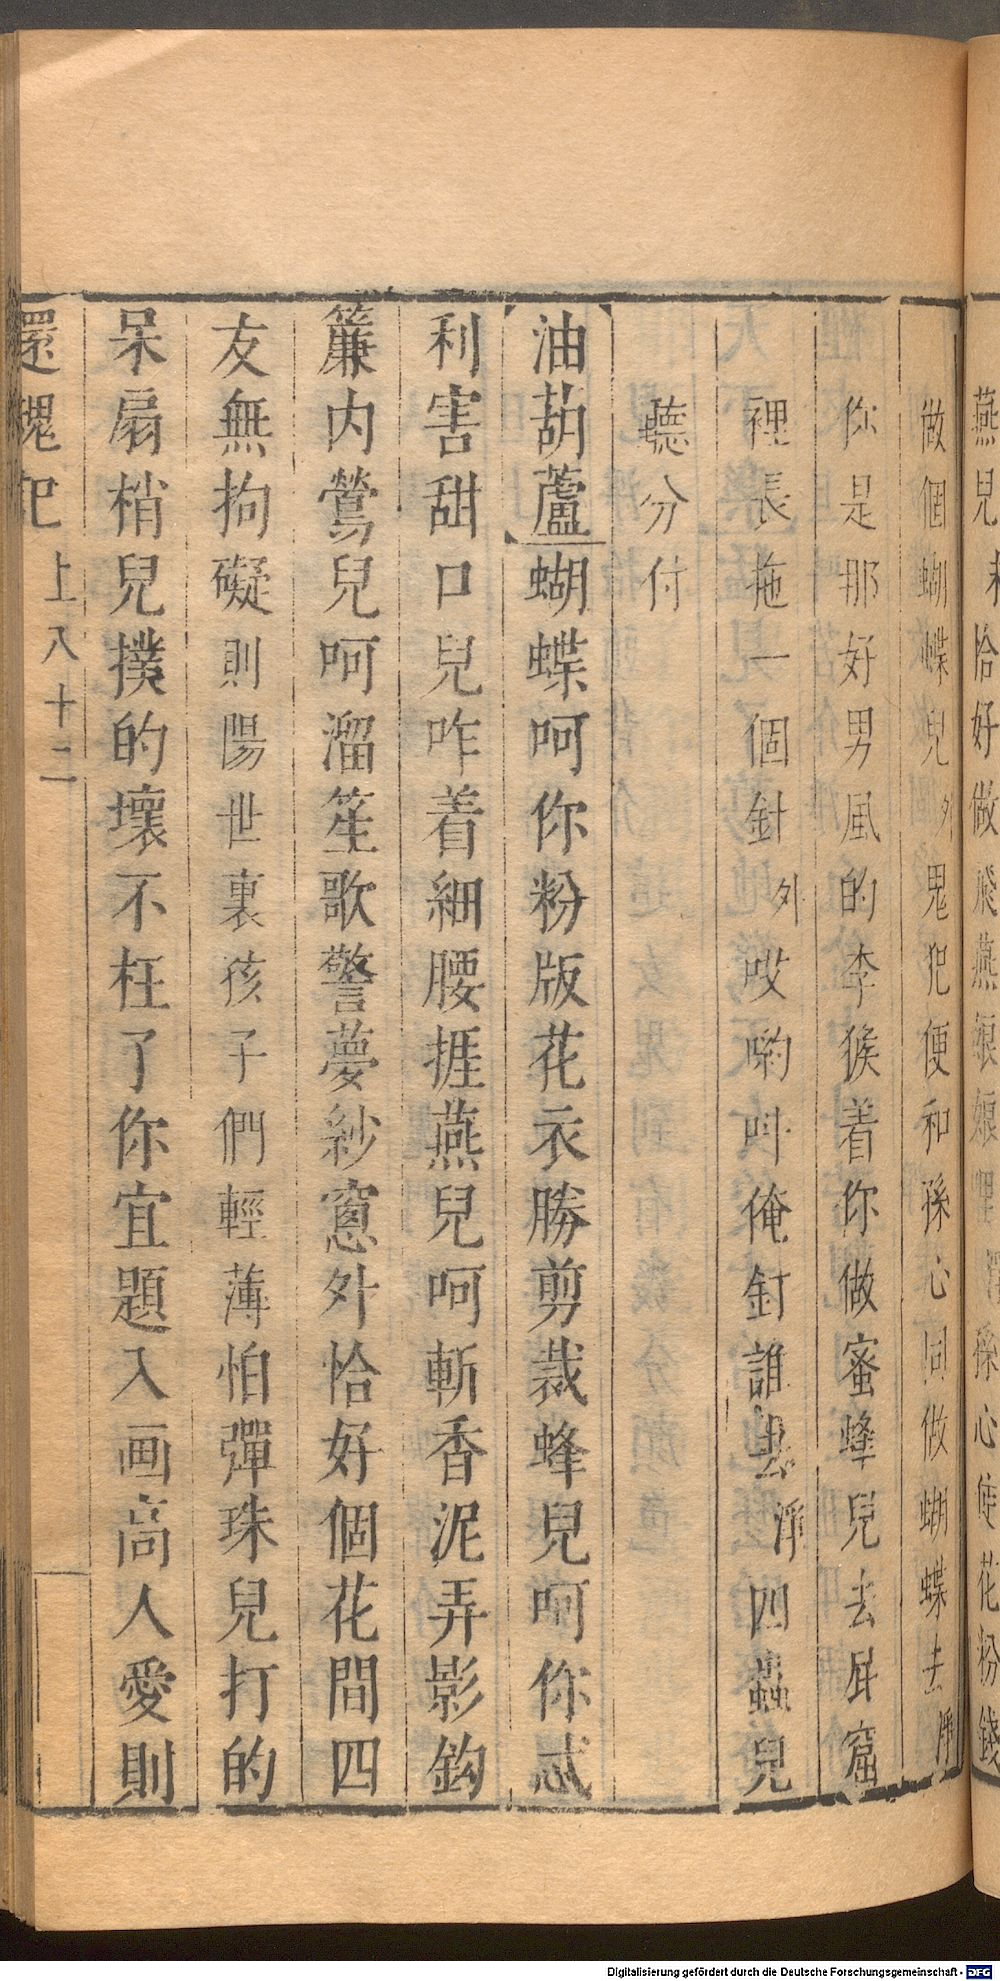 燕兒 恰好做飛燕娘娘哩 孫心使花粉錢
做個蝴蝶兒外鬼犯便和孫心同做蝴蝶去淨
你是那好男風的李猴着你做蜜蜂兒去屁窟
裡長拖一個針外哎喲叫俺釘誰去淨四蟲兒
聽分付
油葫蘆蝴蝶呵你粉版花衣勝剪裁蜂兒呵你忒
利害甜口兒咋着細腰捱燕兒呵斬香泥弄影鈎
簾内鶯兒呵溜笙歌警夢紗窻外恰好個花間四
友無拘礙則陽世裏孩子們輕薄怕彈珠兒打的
呆扇梢兒撲的壞不枉了你宜題入画高人愛則
還魂記 上 八十二
Digitalisierung gefördert durch die Deutsche Forschungsgemeinschaft - DFG